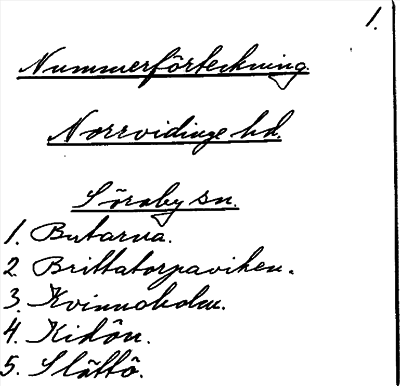 1.
Nummerförteckning.
Norrvidinge hd.
Söraby sn.
1. Butarna.
2 Brittatorpaviken.
3. Kvinnoholm.
4. Kidön.
5. Slättö.